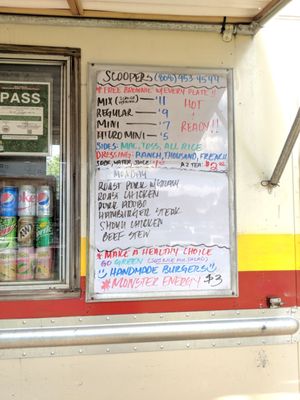 PASS
SCOOPERS (808) 953-4544
* FREE BROWNIE W/EVERY PLATE !!
MIX — $11 HOT
REGULAR — $9 &
MINI — $7 READY!!
MICRO MINI — $5
SIDES: MAC, TOSS, ALL RICE
DRESSING: RANCH, THOUSAND, FRENCH
MONDAY
ROAST PORK W/GRAVY
ROAST CHICKEN
PORK ADOBO
HAMBURGER STEAK
SHOYU CHICKEN
BEEF STEW
* MAKE A HEALTHY CHOICE
GO GREEN
HANDMADE BURGERS
* MONSTER ENERGY $3